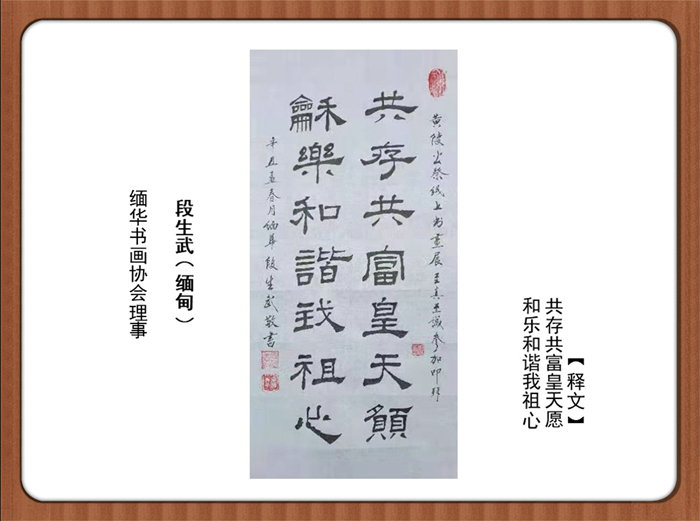 【释文】
共存共富皇天愿
和乐和谐我祖心
黄陵公祭线上书画展至真至诚参加
共存共富皇天願
龢樂和諧我祖心
辛丑孟春月缅華段生武敬書
段生武（缅甸）
缅华书画协会理事